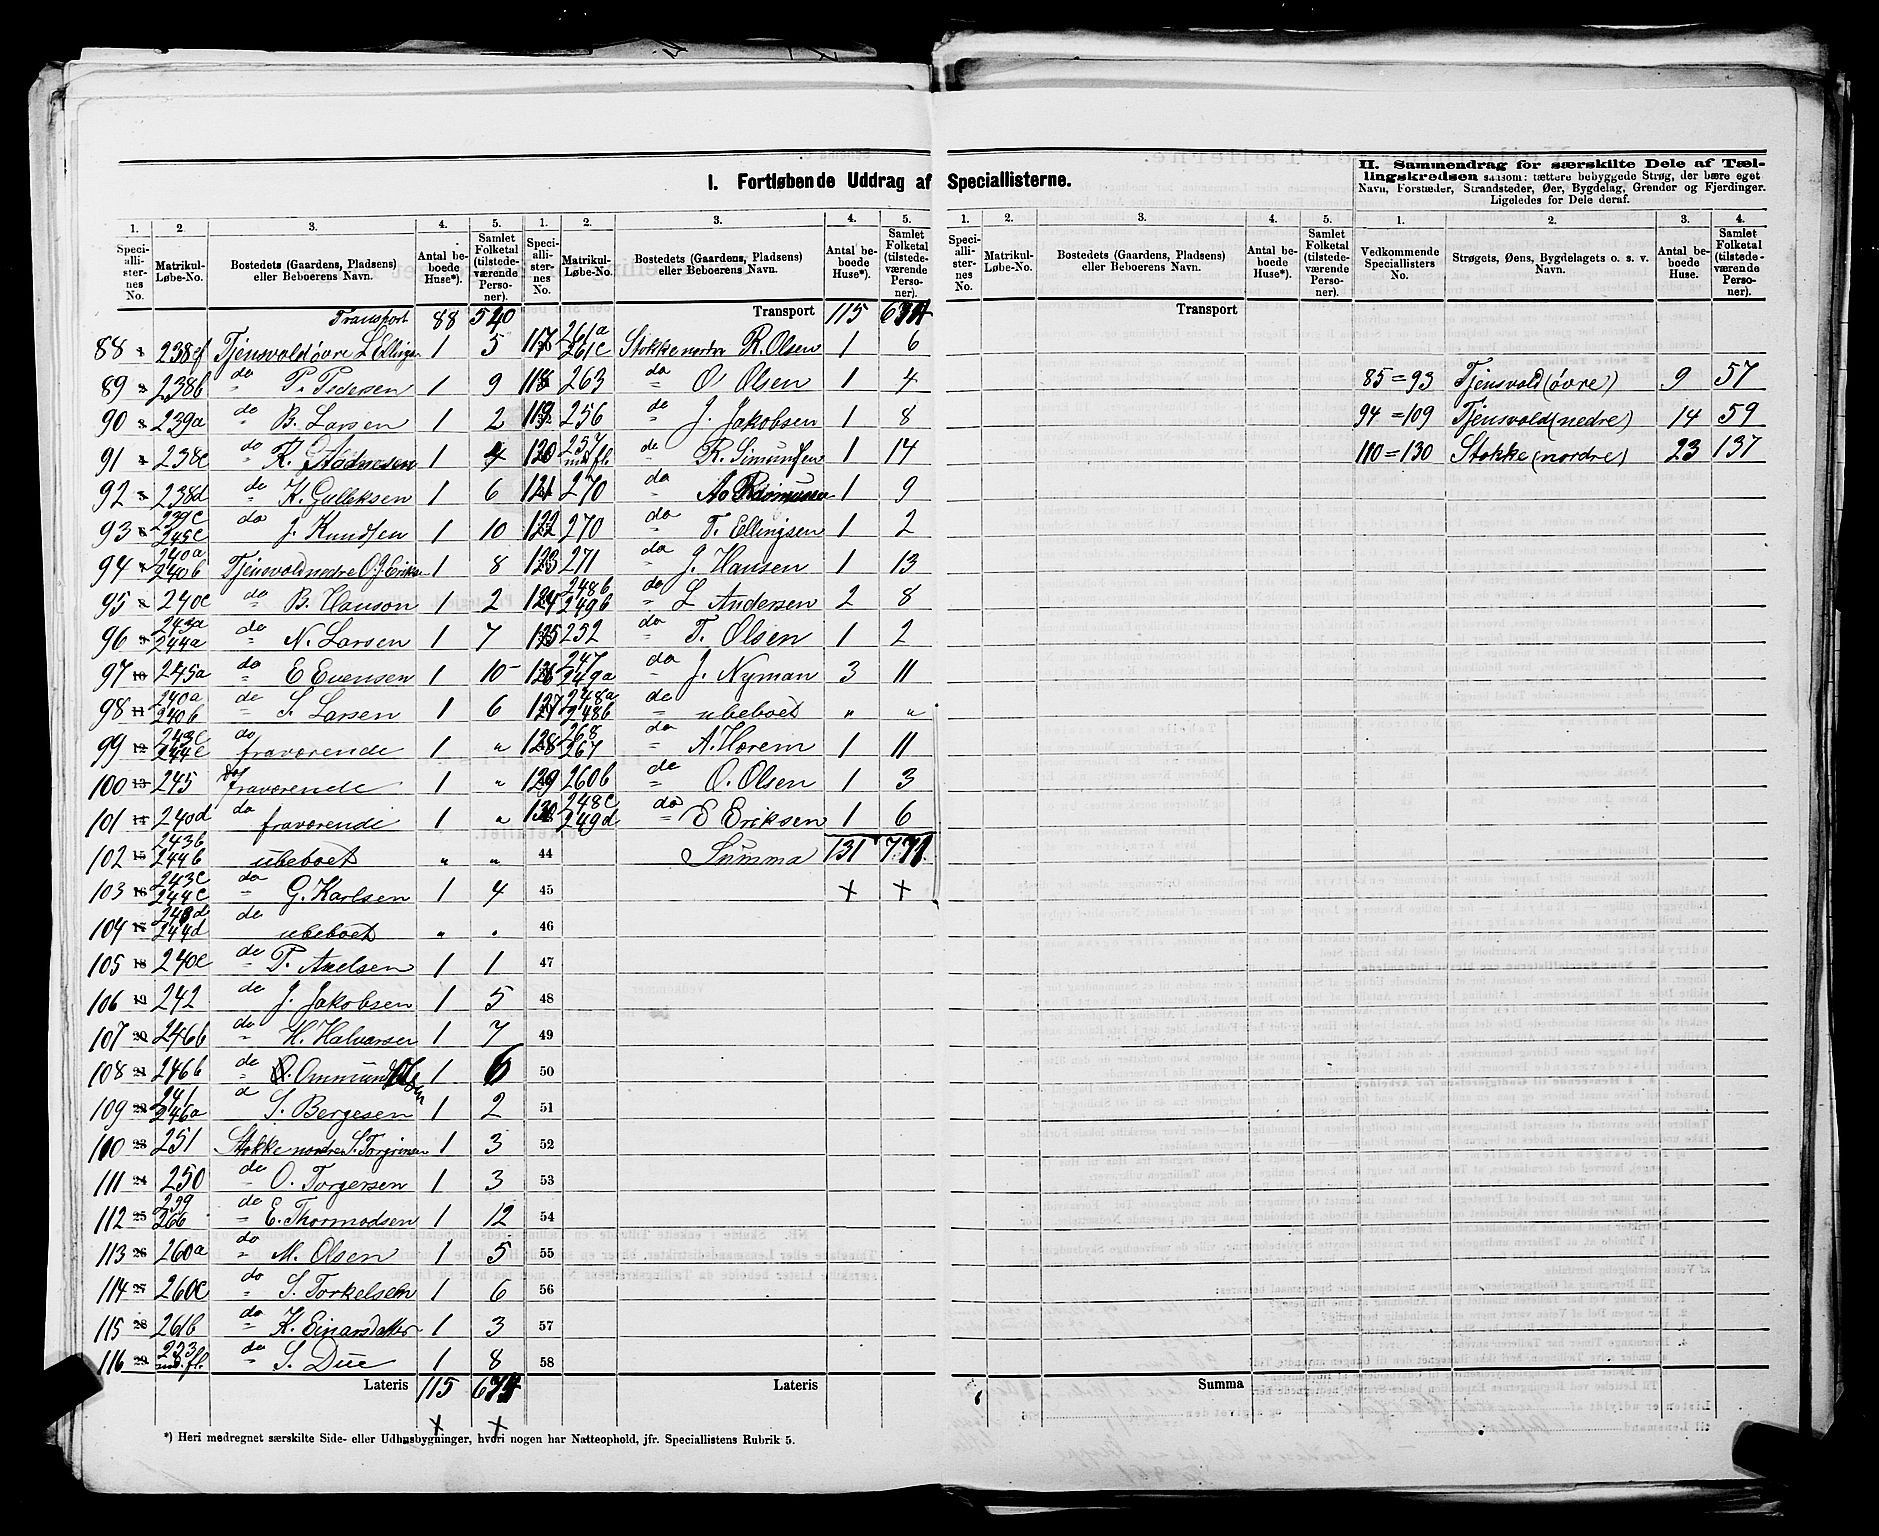 I. Fortløbende Uddrag af Speciallisterne.
II. Sammendrag for særskilte Dele af Tællingskredsen saasom: tættere bebyggede Strøg, der bære eget
Navn, Forstæder, Strandsteder, Øer, Bygdelag, Grender og Fjerdinger.
Ligeledes for Dele deraf.
1. 2. 3. 4. 5. 1. 2. 3. 4. 5.
Speciallisternes No. Matrikul-Løbe-No. Bostedets (Gaardens, Pladsens) eller Beboerens Navn. Antal beboede Huse*). Samlet Folketal (tilstedeværende Personer).
Speciallisternes No. Matrikul-Løbe-No. Bostedets (Gaardens, Pladsens) eller Beboerens Navn. Antal beboede Huse*). Samlet Folketal (tilstedeværende Personer).
Transport 88 540
88 238f Tjensvold øvre L Ellingsen 1 5
89 238b do P. Pedersen 1 9
90 239a do B. Larsen 1 2
91 238e do 1 4
92 238d do K. Gulleksen 1 6
93 239c 245c do J. Knudsen 1 10
94 240a 240b Tjensvold nedre O. J. Eriksen 1 8
95 240c do B. Hanson 1 2
96 243a 244a do N. Larsen 1 7
97 245a do E Evensen 1 10
98 240a 240b do S. Larsen 1 6
99 243c 244c do fraværende 1 "
100 245 do fraværende 1 "
101 240d do fraværende 1 "
102 243b 244b ubeboet " "
103 243c 244c do G. Karlsen 1 4
104 243d 244d do ubeboet " "
105 240e do P. Axelsen 1 1
106 242 do J. Jakobsen 1 5
107 246b do H. Halvarsen 1 7
108 246b do O. Ommundsen 1 6
109 241 246a d S. Bergesen 1 2
110 251 Stokke nordre S. Torgrimsen 1 3
111 250 do O. Torgersen 1 3
112 239 266 do E. Thormodsen 1 12
113 260a do M. Olsen 1 5
114 260c do S. Torkelsen 1 6
115 261b do K. Einarsdatter 1 3
116 223 md. fl. do S. Due 1 8
Lateris 115 674
× ×
Transport 115 674
117 261a 261c Stokke nordre R. Olsen 1 6
118 263 do O Olsen 1 4
119 256 do J. Jakobsen 1 8
120 257 md fl. do R. Simundsen 1 14
121 270 do A Rasmussen 1 9
122 270 do T. Ellingsen 1 2
123 271 do J. Hansen 1 13
124 248b 249b do L Andersen 2 8
125 252 do T. Olsen 1 2
126 247 249a do J. Nyman 3 11
127 248a 248b do ubeboet " "
128 268 267 do A. Hørem 1 11
129 260b do O. Olsen 1 3
130 248c 249d do E Eriksen 1 6
44 Summa 131 771
45 × ×
46
47
48
49
50
51
52
53
54
55
56
57
58
Lateris
*) Heri medregnet særskilte Side- eller Udhusbygninger, hvori nogen har Natteophold, jfr. Speciallistens Rubrik 5.
1. 2. 3. 4. 5. 1. 2. 3. 4.
Speciallisternes No. Matrikul-Løbe-No. Bostedets (Gaardens, Pladsens) eller Beboerens Navn. Antal beboede Huse*). Samlet Folketal (tilstedeværende Personer).
Vedkommende Speciallisters No. Strøgets, Øens, Bygdelagets o. s. v. Navn. Antal beboede Huse. Samlet Folketal (tilstedeværende Personer).
Transport
85=93 Tjensvold (øvre) 9 57
94=109 Tjensvold (nedre) 14 59
110=130 Stokke (nordre) 23 137
Summa